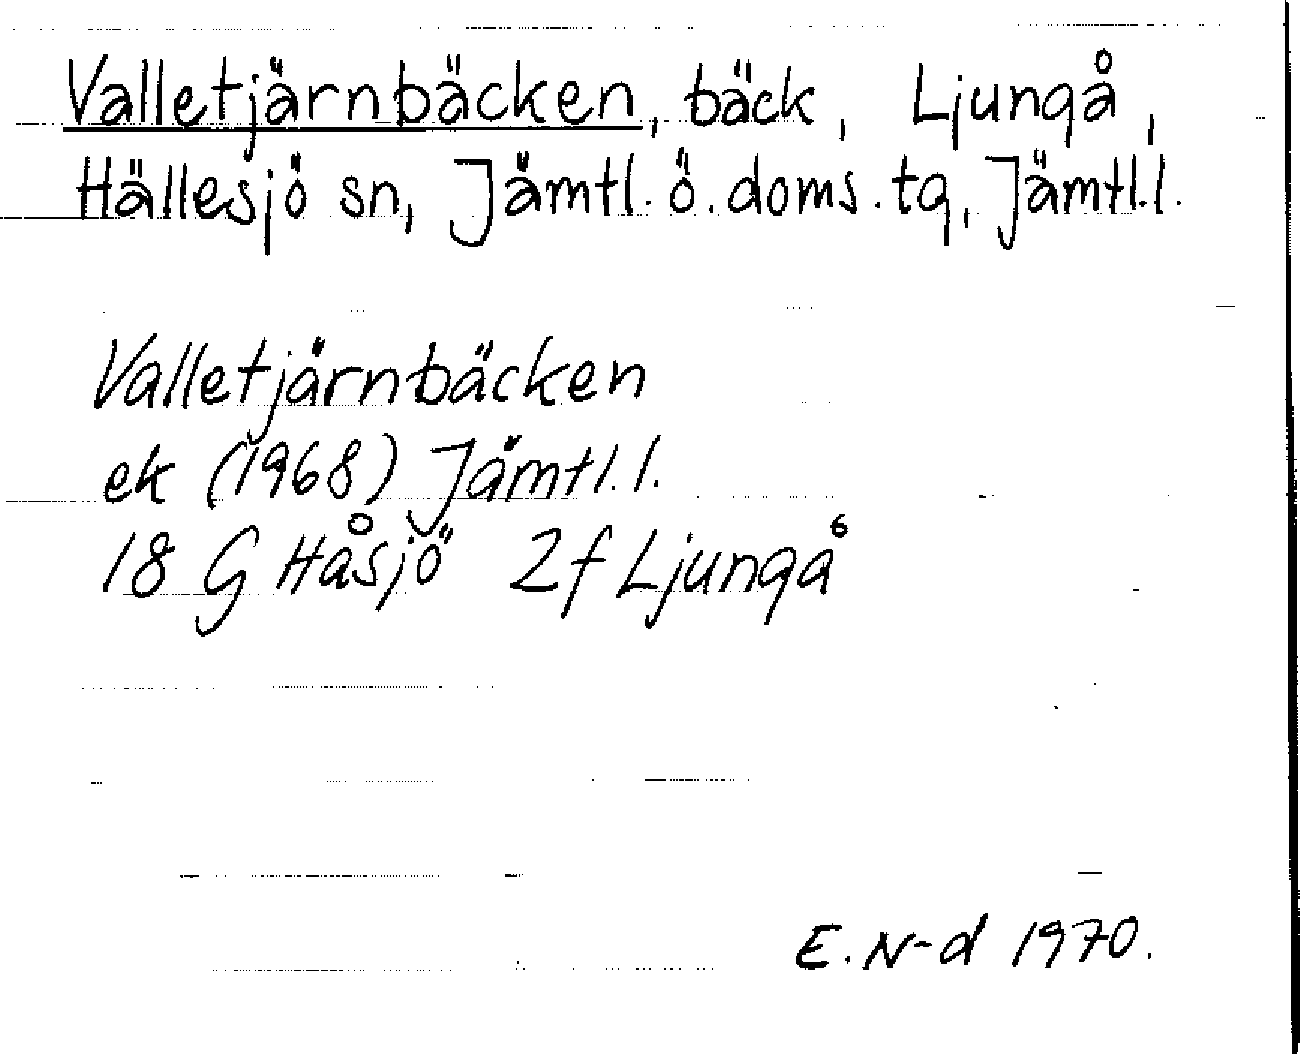 Valletjärnbäcken, bäck, Ljungå,
Hällesjö sn, Jämtl. ö. doms. tg, Jämtl.l.
Valletjärnbäcken
ek (1968) Jämtl. l.
18 G Håsjö 2f Ljungå
E. N-d 1970.